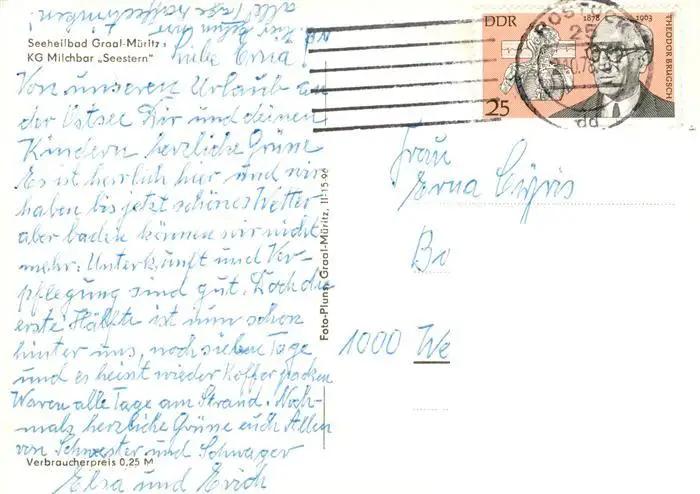 Seeheilbad Graal-Müritz
KG Milchbar „Seestern"
Liebe Erna!
Von unseren Urlaub an
der Ostsee Dir und deinen
Kindern herzliche Grüße
Es ist herrlich hier und wir
haben bis jetzt schönes Wetter
aber baden können wir nicht
mehr. Unterkunft und Ver-
pflegung sind gut. Doch die
erste Hälfte ist nun schon
hinter uns, noch sieben Tage
und es heisst wieder Koffer packen
Waren alle Tage am Strand. Noch-
mals herzliche Grüße euch Allen
von Schwester und Schwager
Elsa und Erich
alle Tage
Verbraucherpreis 0,25 M
Foto-Pluns, Graal-Müritz, II-15-96
DDR
25
1878 1963
THEODOR BRUGSCH
ROSTOCK
25
Frau
Erna
Bo
1000 We